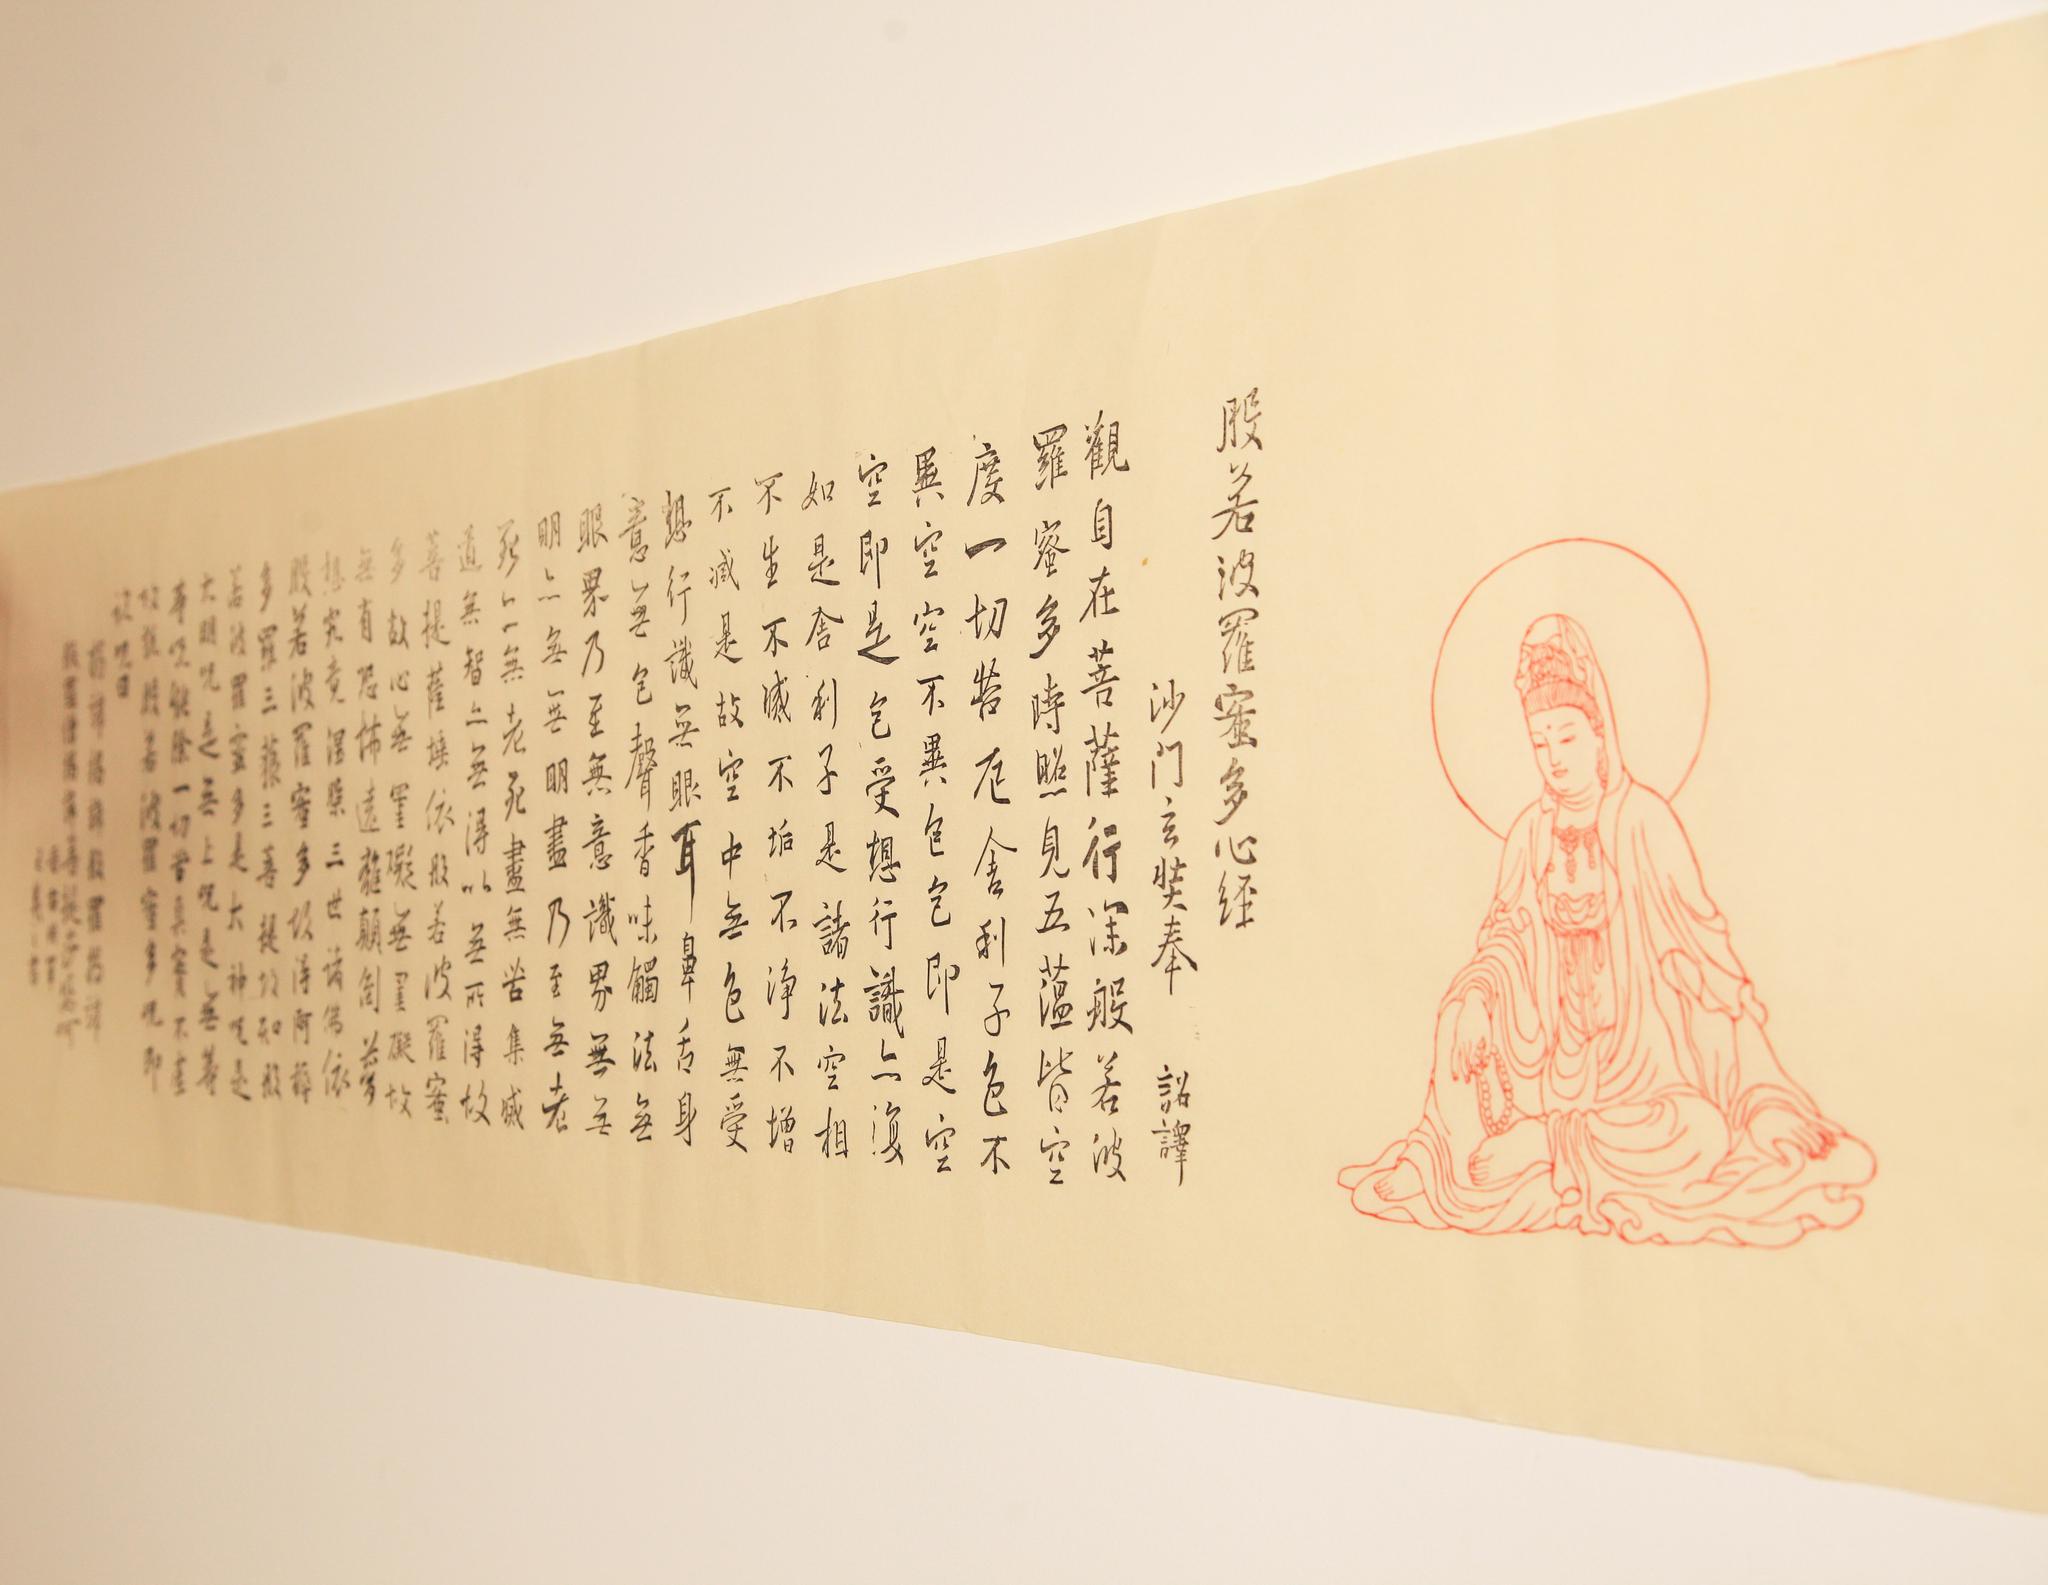 般若波羅蜜多心経
沙門玄奘奉 詔譯
觀自在菩薩行深般若波
羅蜜多時照見五蘊皆空
度一切苦厄舍利子色不
異空空不異色色即是空
空即是色受想行識亦復
如是舍利子是諸法空相
不生不滅不垢不淨不增
不減是故空中無色無受
想行識無眼耳鼻舌身
意無色聲香味觸法無
眼界乃至無意識界無無
明亦無無明盡乃至無老
死亦無老死盡無苦集滅
道無智亦無得以無所得故
菩提薩埵依般若波羅蜜
多故心無罣礙無罣礙故
無有恐怖遠離顛倒夢
想究竟涅槃三世諸佛依
般若波羅蜜多故得阿耨
多羅三藐三菩提故知般
若波羅蜜多是大神咒是
大明咒是無上咒是無等
等咒能除一切苦真實不虛
故説般若波羅蜜多咒即
説咒曰
揭諦揭諦般羅揭諦
般羅僧揭諦菩提莎婆訶